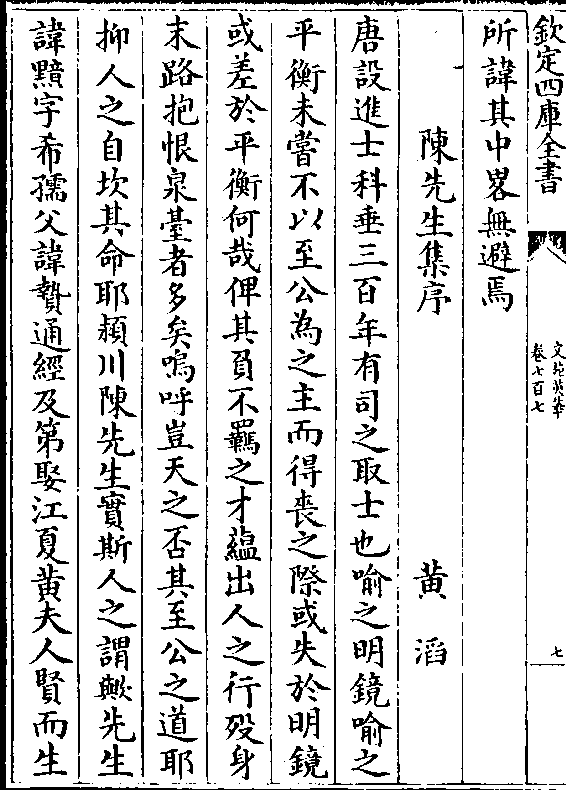 欽定四庫全書
文苑英華
卷七百七
七
所諱其中畧無避焉
陳先生集序 黃滔
唐設進士科垂三百年有司之取士也喻之明鏡喻之
平衡未嘗不以至公為之主而得喪之際或失於明鏡
或差於平衡何哉俾其負不羈之才蘊出人之行歿身
末路抱恨泉臺者多矣嗚呼豈天之否其至公之道耶
抑人之自坎其命耶潁川陳先生實斯人之謂歟先生
諱黯字希孺父諱贄通經及第娶江夏黃夫人賢而生